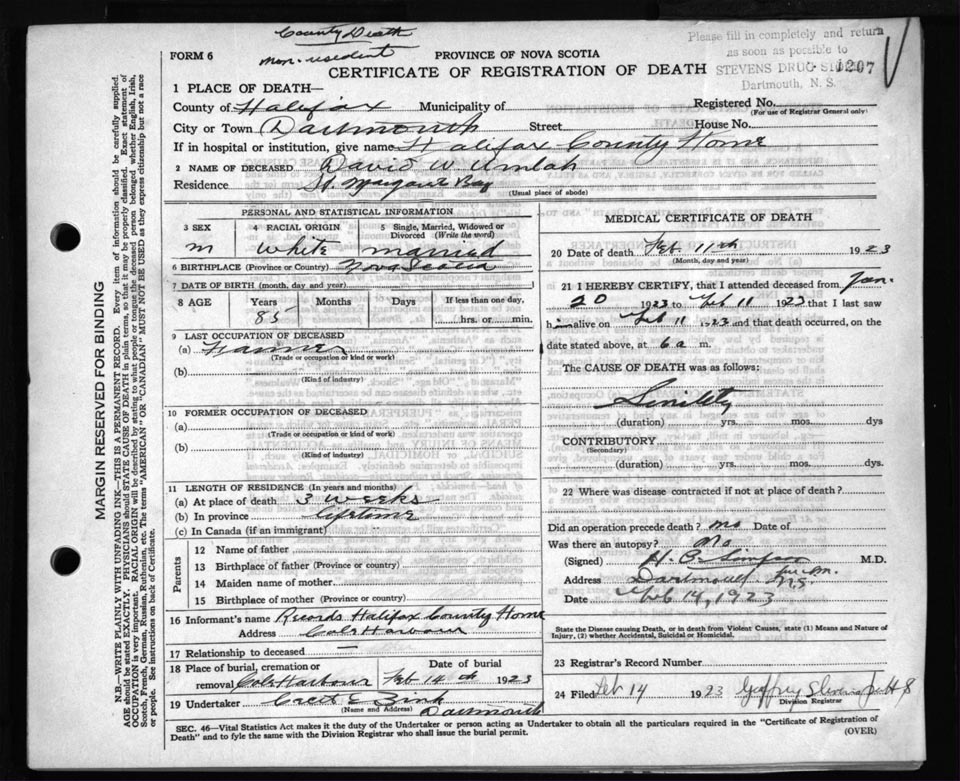 County Death
non-resident
Please fill in completely and return
as soon as possible to
STEVENS DRUG STORE
Dartmouth, N. S.
1207
FORM 6
PROVINCE OF NOVA SCOTIA
CERTIFICATE OF REGISTRATION OF DEATH
1 PLACE OF DEATH—
County of Halifax Municipality of Registered No.
(For use of Registrar General only)
City or Town Dartmouth Street House No.
If in hospital or institution, give name Halifax County Home
2 NAME OF DECEASED David W. Umlah
Residence St. Margaret Bay
(Usual place of abode)
PERSONAL AND STATISTICAL INFORMATION
3 SEX 4 RACIAL ORIGIN 5 Single, Married, Widowed or Divorced (Write the word)
m white married
6 BIRTHPLACE (Province or Country) Nova Scotia
7 DATE OF BIRTH (month, day and year)
8 AGE Years Months Days If less than one day,
85 hrs. or min.
9 LAST OCCUPATION OF DECEASED
(a) Farmer
(Trade or occupation or kind or work)
(b)
(Kind of industry)
10 FORMER OCCUPATION OF DECEASED
(a)
(Trade or occupation or kind of work)
(b)
(Kind of industry)
11 LENGTH OF RESIDENCE (In years and months)
(a) At place of death 3 weeks
(b) In province lifetime
(c) In Canada (if an immigrant)
Parents
12 Name of father
13 Birthplace of father (Province or country)
14 Maiden name of mother
15 Birthplace of mother (Province or country)
16 Informant's name Records Halifax County Home
Address Cole Harbour
17 Relationship to deceased —
18 Place of burial, cremation or Date of burial
removal Cole Harbour Feb 14th 1923
19 Undertaker
(Name and Address) Dartmouth
MEDICAL CERTIFICATE OF DEATH
20 Date of death Feb 11th 1923
(Month, day and year)
21 I HEREBY CERTIFY, that I attended deceased from Jan.
20 1923 to Feb 11 1923 that I last saw
him alive on Feb 11 1923 and that death occurred, on the
date stated above, at 6 a m.
The CAUSE OF DEATH was as follows:
Senility
(duration) yrs. mos. dys
CONTRIBUTORY
(Secondary)
(duration) yrs. mos. dys.
22 Where was disease contracted if not at place of death?
Did an operation precede death? no Date of
Was there an autopsy? No
(Signed) H. C. Simpson M.D.
Address Dartmouth N.S.
Date Feb 14, 1923
State the Disease causing Death, or in death from Violent Causes, state (1) Means and Nature of Injury, (2) whether Accidental, Suicidal or Homicidal.
23 Registrar's Record Number
24 Filed Feb 14 1923
Division Registrar
SEC. 46—Vital Statistics Act makes it the duty of the Undertaker or person acting as Undertaker to obtain all the particulars required in the "Certificate of Registration of
Death" and to fyle the same with the Division Registrar who shall issue the burial permit. (OVER)
MARGIN RESERVED FOR BINDING
N.B.—WRITE PLAINLY WITH UNFADING INK—THIS IS A PERMANENT RECORD. Every item of information should be carefully supplied.
AGE should be stated EXACTLY. PHYSICIANS should STATE CAUSE OF DEATH in plain terms, so that it may be properly classified. Exact statement of
OCCUPATION is very important. RACIAL ORIGIN will be described by stating to what people or tongue the deceased person belonged whether English, Irish,
Scotch, French, German, Russian, Ruthenian, etc. The terms "AMERICAN" OR "CANADIAN" MUST NOT BE USED as they express citizenship but not a race
or people. See instructions on back of Certificate.